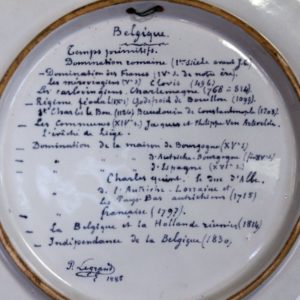 Belgique.
Temps primitifs.
Domination romaine (1er siècle avant J.C.)
- Domination des Francs (IVe s. de notre ère).
- Les mérovingiens (Ve s) Clovis (496)
- Les carlovingiens. Charlemagne (768-814)
- Régime féodal (XIe) Godefroid de Bouillon (1099).
- Charles le Bon (1124) Baudouin de Constantinople (1203).
- Les Communes (XIVe s.) Jacques et Philippe Van Artevelde.
L'évêché de Liège.
- Domination de la maison de Bourgogne (XVe s)
" " d'Autriche-Bourgogne
" " d'Espagne (XVIe s)
Charles quint. le Duc d'Albe.
" d. l'Autriche-Lorraine et
les Pays Bas autrichiens (1715)
" française (1797).
- La Belgique et la Hollande réunies (1814)
- Indépendance de la Belgique (1830)
P. Legrand